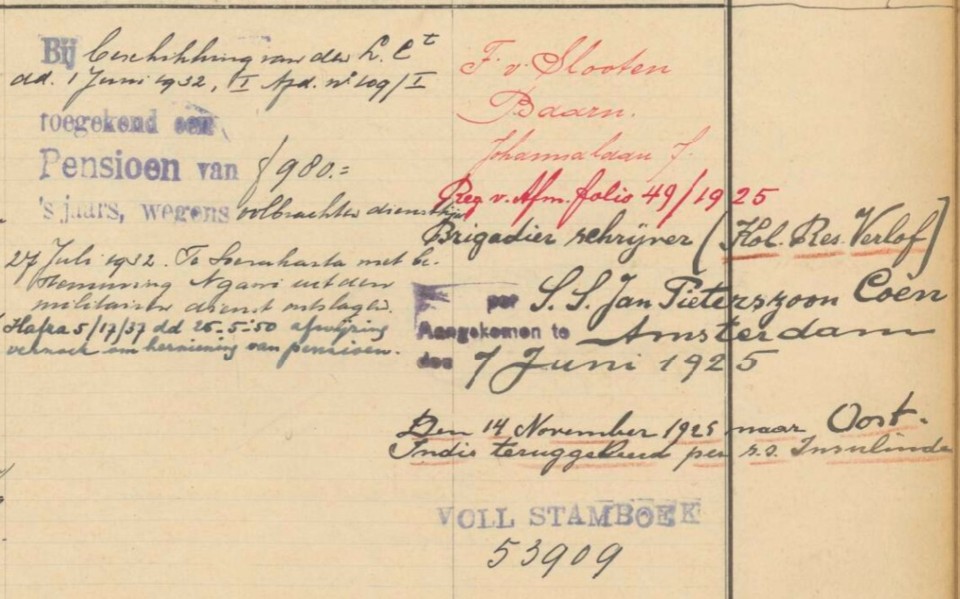 Bij beschikking van den L. Ct
dd. 1 Juni 1932, I Afd. no 109/I
toegekend een
Pensioen van ƒ 980.=
's jaars, wegens volbrachten diensttijd
27 Juli 1932. Te Soerakarta met be-
stemming Ngawi uit den
militairen dienst ontslagen.
Hafra 5/17/37 dd 25-5-50 afwijzing
verzoek om herziening van pensioen.
F. v. Slooten
Baarn.
Johannalaan 7.
Reg v. Afm. folio 49/1925
Brigadier schrijver (Hol. Res. Verlof)
per S.S. Jan Pieterszoon Coen
Aangekomen te Amsterdam
den 7 Juni 1925
Den 14 November 1925 naar Oost-
Indië teruggekeerd per s.s. Insulinde
VOLL STAMBOEK
53909